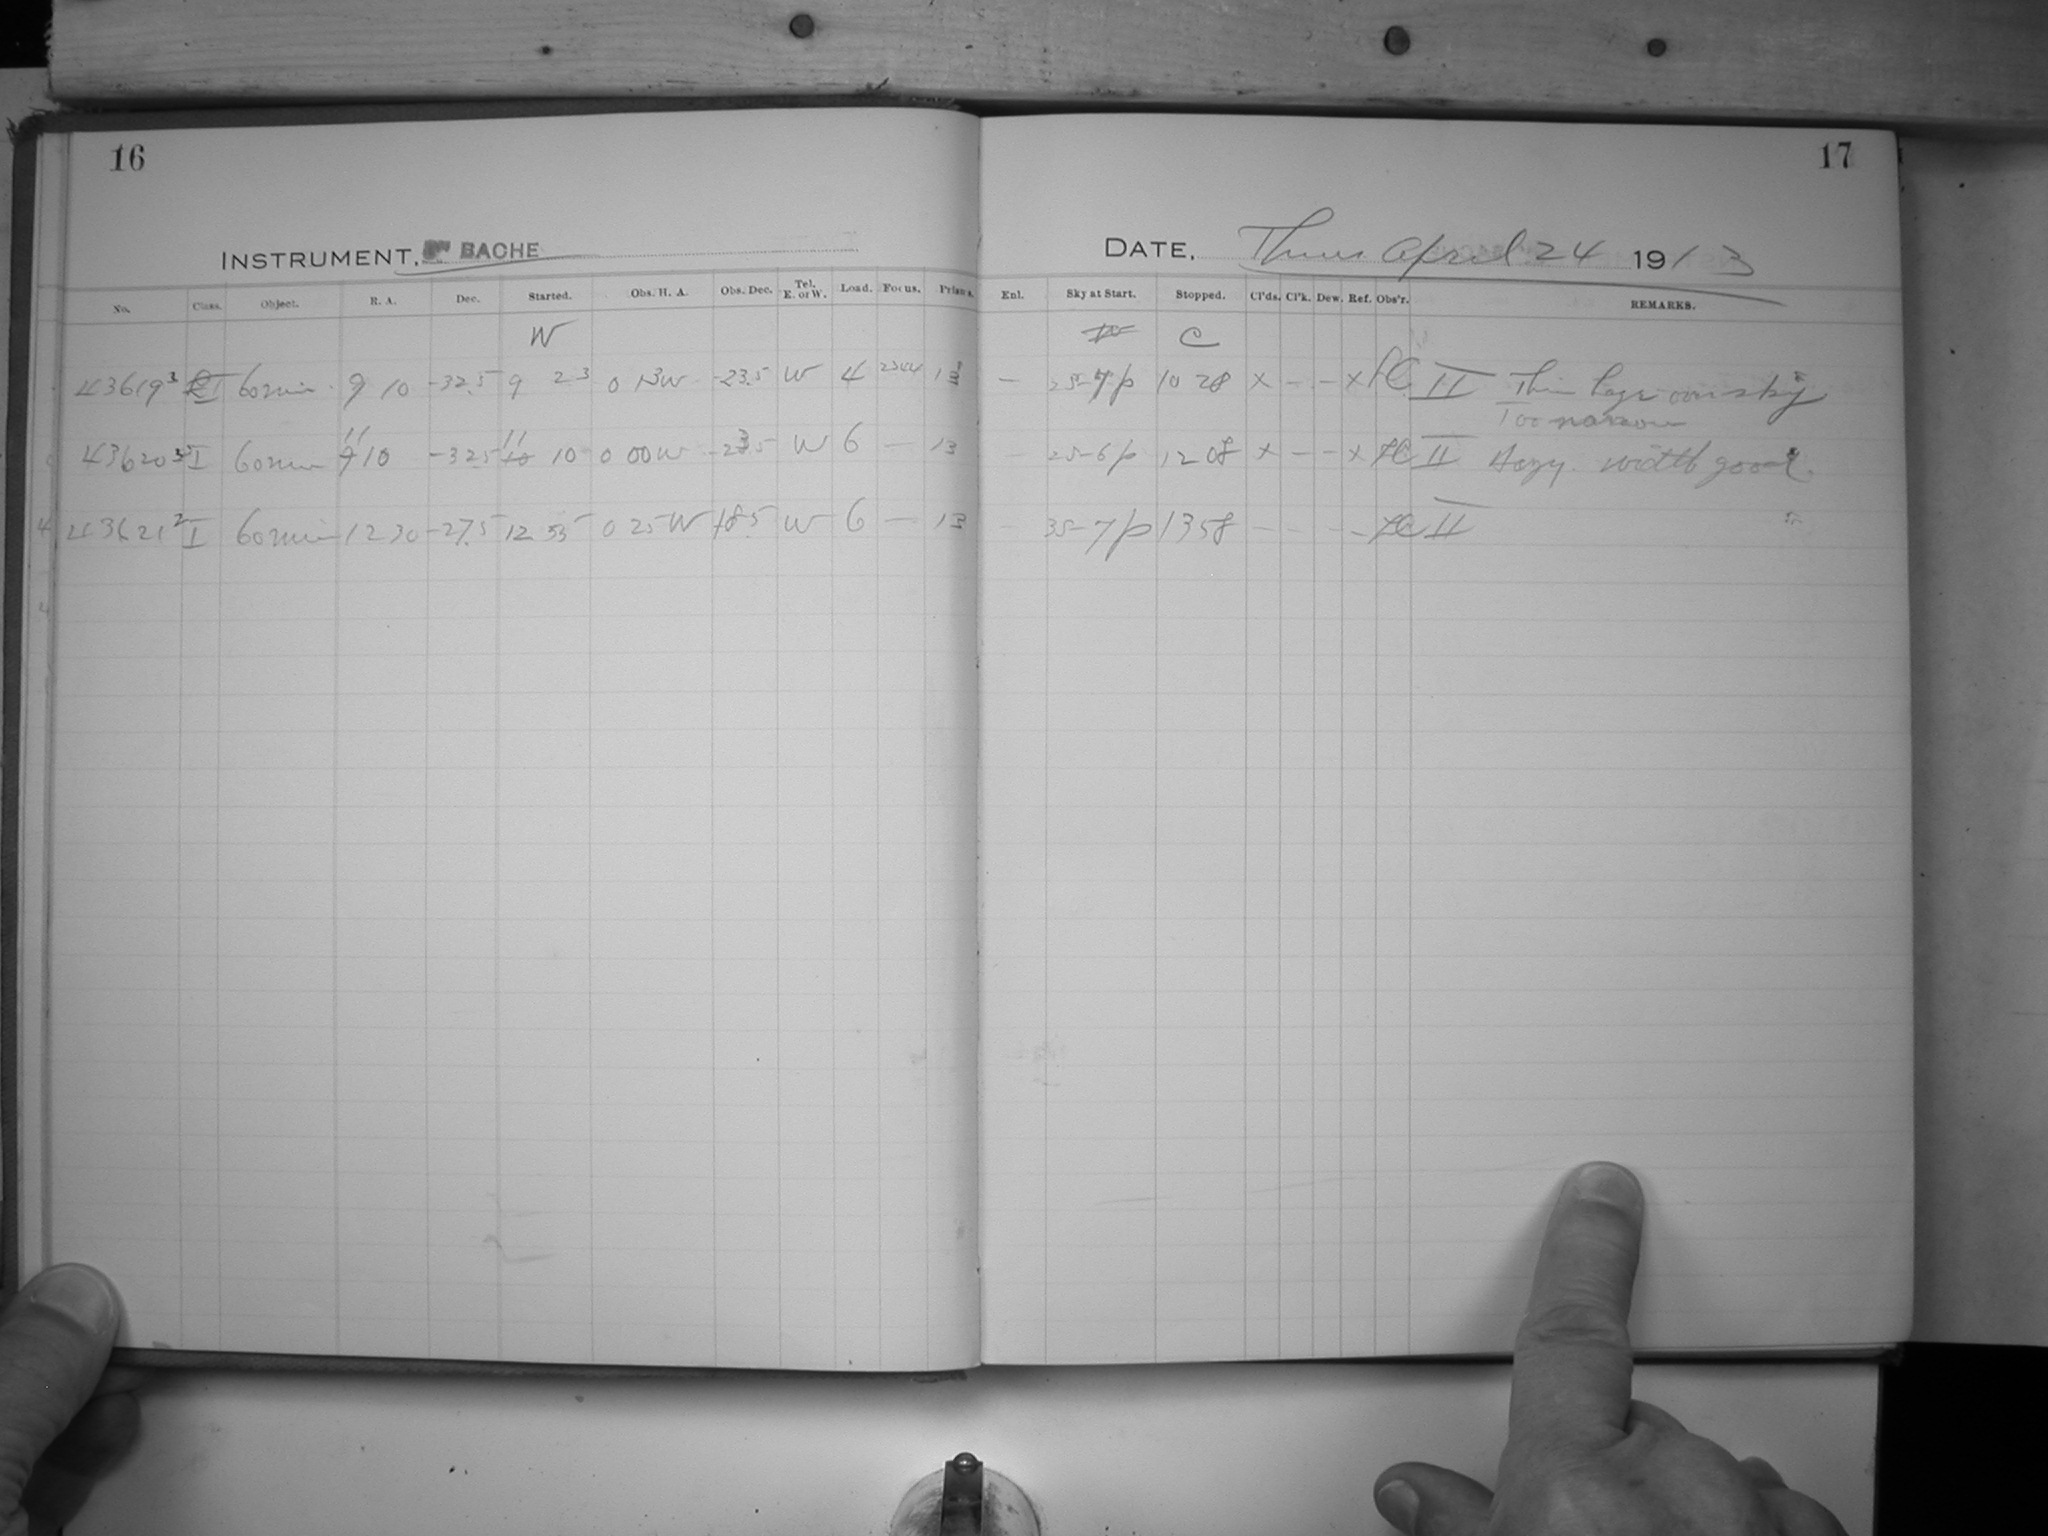 16
17
INSTRUMENT, BACHE
DATE, Thurs April 24 1913
No. Class. Object. R. A. Dec. Started. Obs. H. A. Obs. Dec. Tel. E. or W. Load. Focus. Prisms.
Enl. Sky at Start. Stopped. Cl'ds. Cl'k. Dew. Ref. Obs'r. REMARKS.
W
C
43619 3 I 60 min 9 10 -32.5 9 23 0 13 W -23.5 W 4 13
— 25-7p 10 28 x - - x II Thin haze over sky
Too narrow
43620 3 I 60 min 11 10 -32.5 11 10 0 00 W -23.5 W 6 — 13
25-6p 12 08 x - - x II Hazy. width good.
43621 2 I 60 min 12 30 -27.5 12 55 0 25 W 18.5 W 6 — 13
- 35-7p 13 58 - - - - II